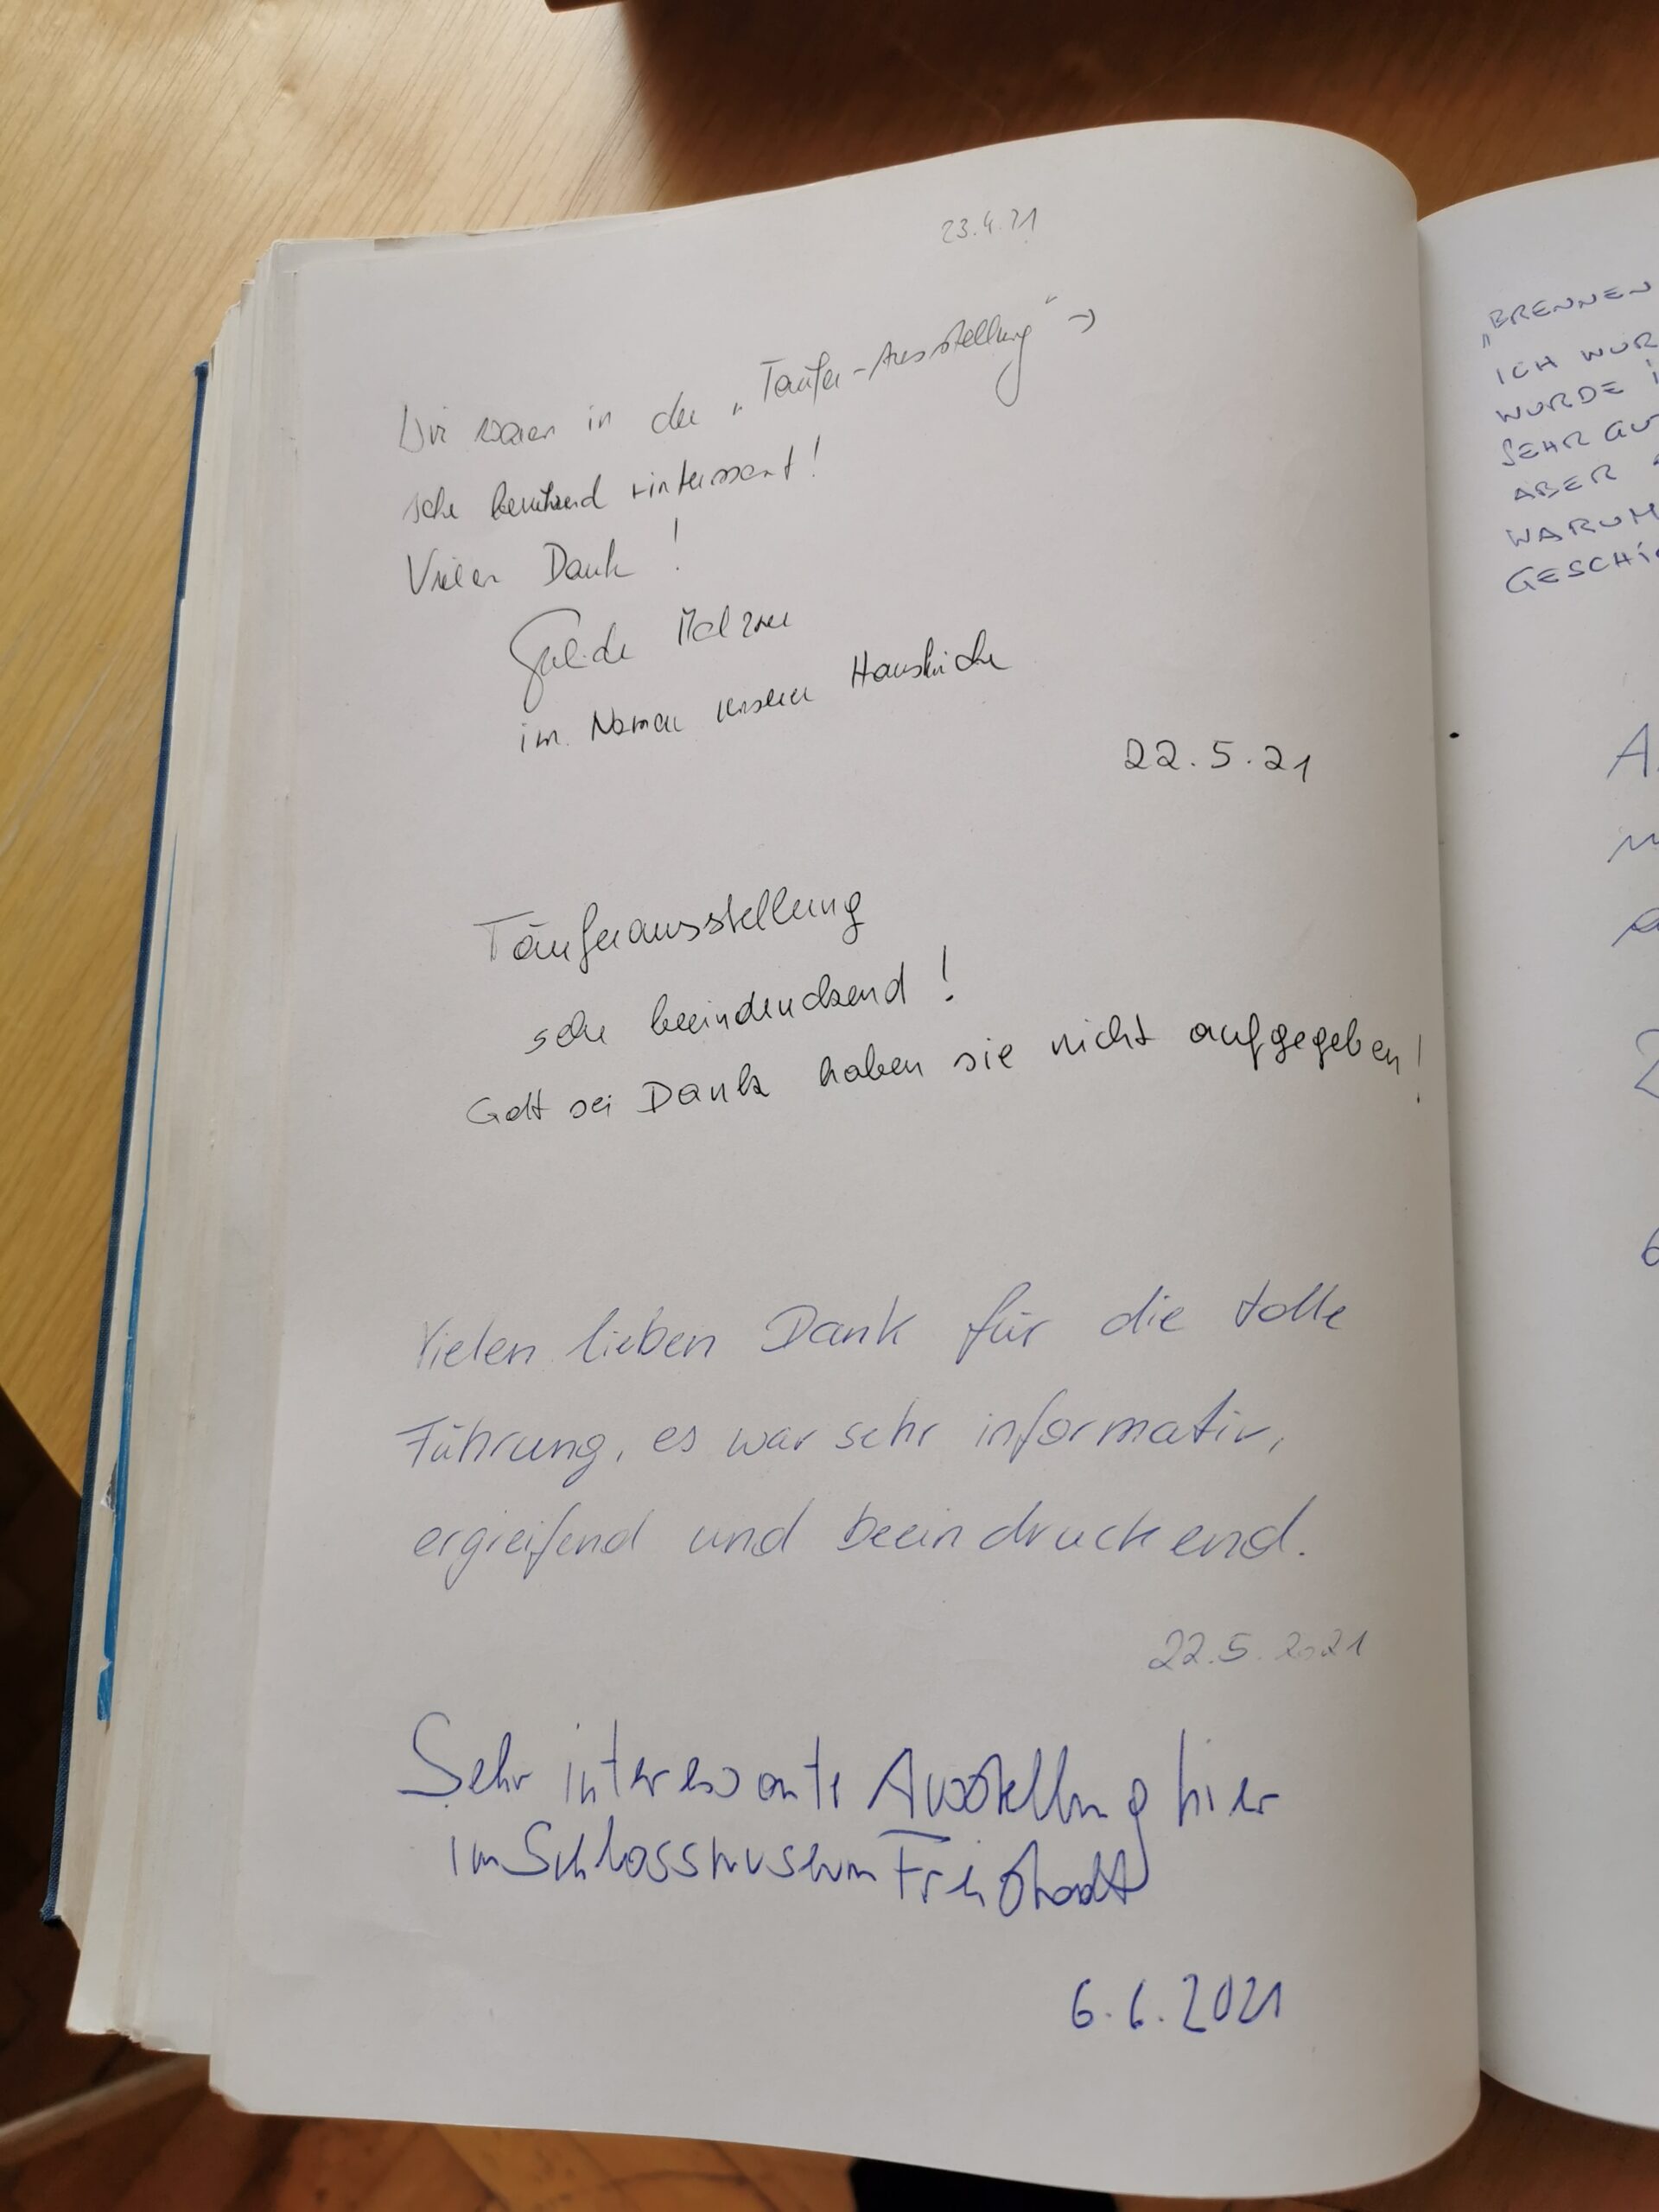 23.4.21
Wir waren in der „Täufer-Ausstellung" →
sehr berührend + interessant!
Vielen Dank!
im Namen unserer Hauskirche
22.5.21
Täuferausstellung
sehr beeindruckend!
Gott sei Dank haben sie nicht aufgegeben!
Vielen lieben Dank für die tolle
Führung, es war sehr informativ,
ergreifend und beeindruckend.
22.5.2021
Sehr interessante Ausstellung hier
im Schlossmuseum Freistadt
6.6.2021
„BRENNEN
ICH WUR
WURDE
SEHR GU
ABER
WARUM
GESCHI